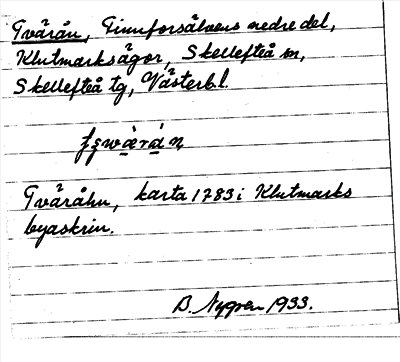 Tvärån, Finnforsälvens nedre del,
Klutmarksägor, Skellefteå sn,
Skellefteå tg, Västerb. l.
Tvåråhn, karta 1783 i Klutmarks
byaskrin.
B. Nygren 1933.